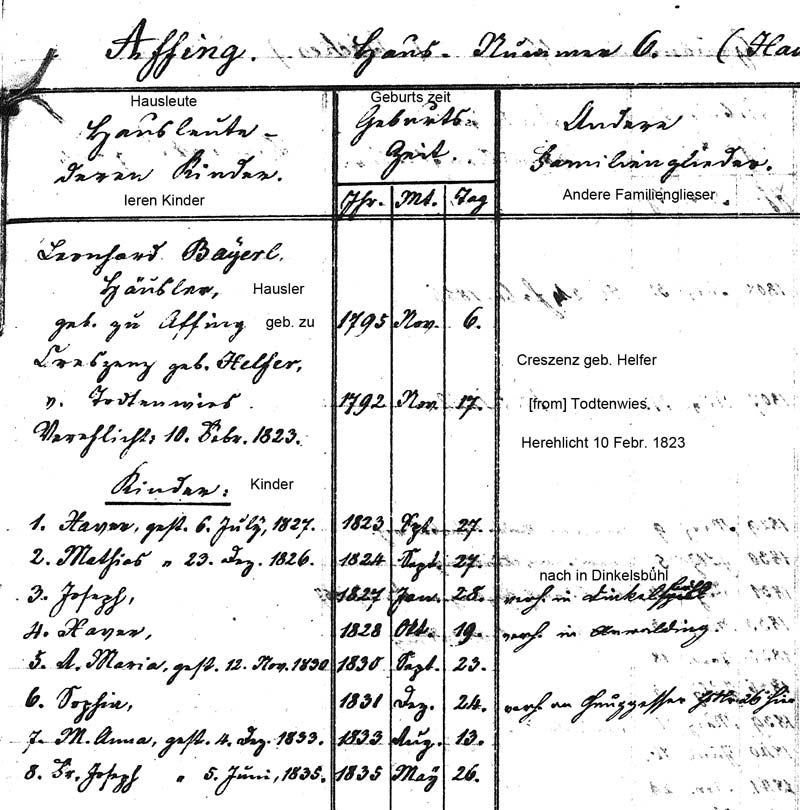 Affing. Haus-Nummer 6. (Hau
Hausleute
Hausleute -
deren Kinder.
Ieren Kinder
Geburts zeit
Geburts-
Zeit.
Jhr. Mt. Tag
Andere
Familienglieder.
Andere Familienglieser
Leonhard Bayerl,
Häusler, Hausler
geb. zu Affing geb. zu 1795 Nov. 6.
Creszenz geb. Helfer, Creszenz geb. Helfer
v. Todtenwies. 1792 Nov 17. [from] Todtenwies.
Verehlicht: 10. Febr. 1823. Herehlicht 10 Febr. 1823
Kinder: Kinder
1. Xaver, gest. 6. July, 1827. 1823 Spt. 27.
2. Mathias " 23. Dez. 1826. 1824 Sept. 27.
nach in Dinkelsbühl
3. Joseph, 1827 Jan 28. verh. in Dinkelsbühl
4. Xaver, 1828 Okt. 19. verh. in
5. A. Maria, gest. 12. Nov. 1830 1830 Sept. 23.
6. Sophia, 1831 Dez. 24. verh. an
7. M. Anna, gest. 4. Dez. 1833. 1833 Aug. 13.
8. Fr. Joseph " 5. Juni, 1835. 1835 May 26.